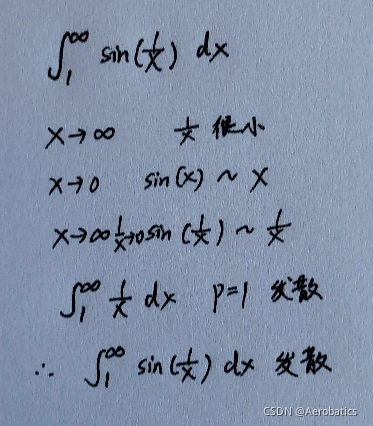 ∫₁^∞ sin(1/x) dx
x→∞ 1/x 很小
x→0 sin(x) ~ x
x→∞ 1/x→0 sin(1/x) ~ 1/x
∫₁^∞ 1/x dx p=1 发散
∴ ∫₁^∞ sin(1/x) dx 发散
CSDN @Aerobatics